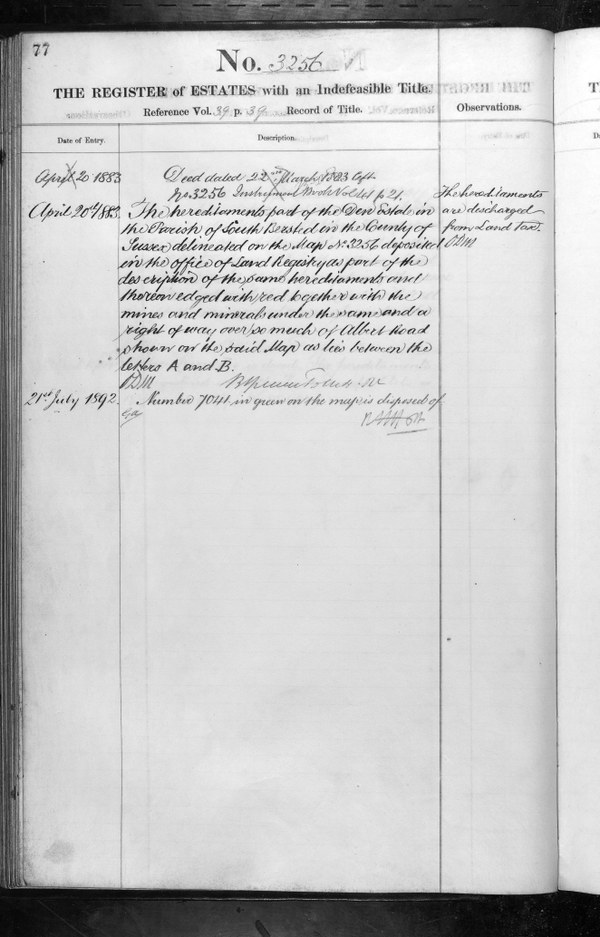 77
No. 3256
THE REGISTER of ESTATES with an Indefeasible Title.
Reference Vol. 39 p. 39 Record of Title.
Observations.
Date of Entry.
Description.
April 20 1883
Deed dated 22nd March 1883
No. 3256 Instrument Book Vol 41 p 21.
April 20th 1883.
The hereditaments part of the Den Estate in
the Parish of South Bersted in the County of
Sussex delineated on the Map No. 3256 deposited
in the office of Land Registry as part of the
description of the same hereditaments and
thereon edged with red together with the
mines and minerals under the same and a
right of way over so much of Albert Road
shown on the said Map as lies between the
letters A and B.
The hereditaments
are discharged
from Land Tax.
21st July 1892.
Number 7041 in green on the map is disposed of